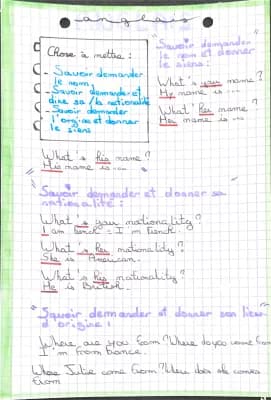 anglais
Chose à mettre :
- Savoir demander
le nom
- Savoir demander et
dire sa / la nationalité
- Savoir demander
l'origine et donner
le siens
"Savoir demander
le nom et donner
le siens :
What's your name ?
My name is ...
What's her name ?
Her name is ...
What's his name ?
His name is ...
"Savoir demander et donner sa
nationalité :
What's your nationality ?
I am french = I'm french.
What's her nationality ?
She is American.
What's his nationality ?
He is British.
"Savoir demander et donner son lieu
d'origine :
Where are you from ? Where do you come from
I'm from France.
Julie come from ? Where does she comes
from